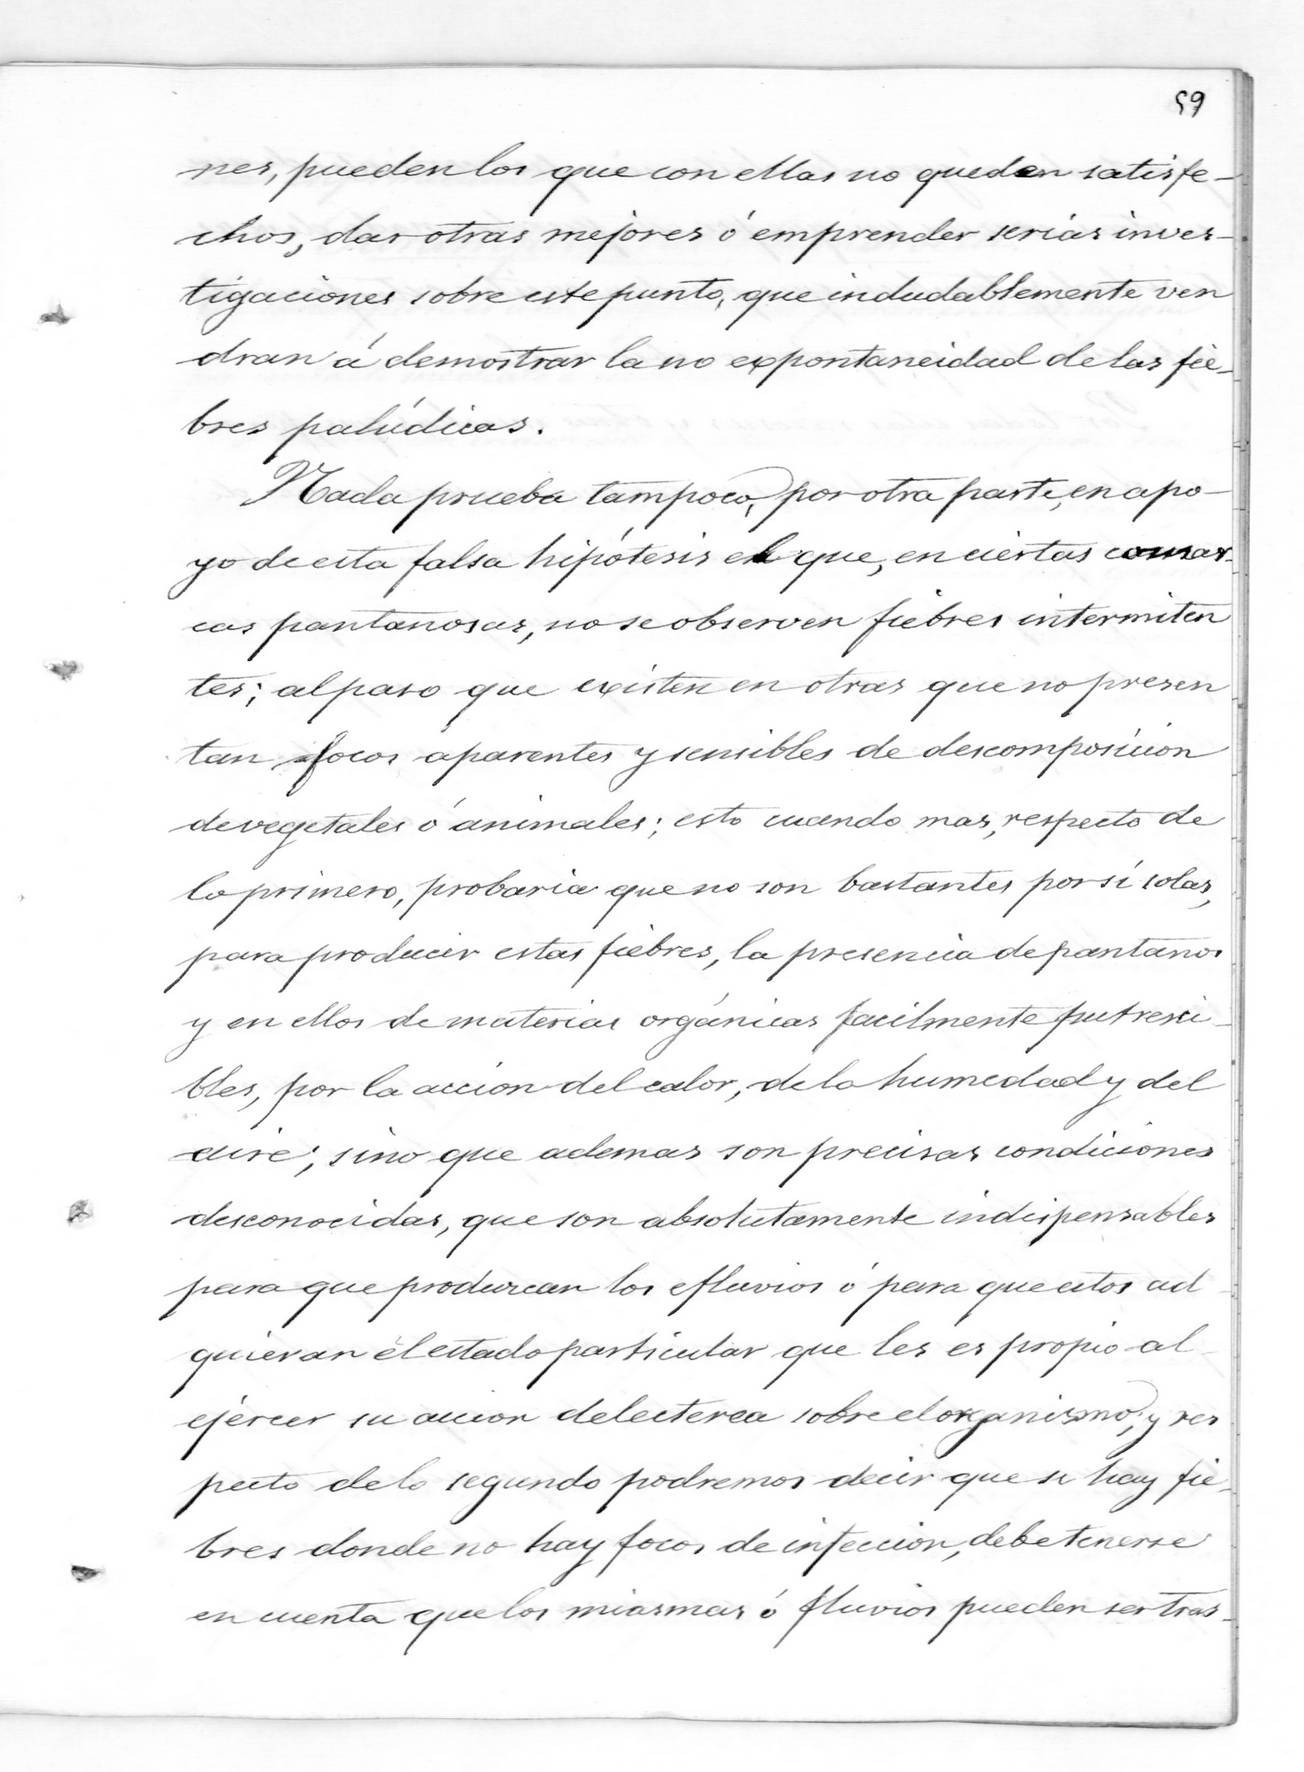 59
nes, pueden los que con ellas no queden satisfe-
chos, dar otras mejores ó emprender serias inves-
tigaciones sobre este punto, que indudablemente ven
dran á demostrar la no expontaneidad de las fie-
bres palúdicas.
Nada prueba tampoco, por otra parte, en apo-
yo de esta falsa hipótesis el que, en ciertas comar-
cas pantanosas, no se observen fiebres intermiten
tes; al paso que existen en otras que no presen
tan focos aparentes y sensibles de descomposicion
de vegetales ó animales; esto cuando mas, respecto de
lo primero, probaria que no son bastantes por sí solas,
para producir estas fiebres, la presencia de pantanos
y en ellos de materias orgánicas facilmente putresci-
bles, por la accion del calor, de la humedad y del
aire; sino que ademas son precisas condiciones
desconocidas, que son absolutamente indispensables
para que produzcan los efluvios ó para que estos ad
quieran el estado particular que les es propio al
ejercer su accion delecterea sobre el organismo; y res
pecto de lo segundo podremos decir que si hay fie-
bres donde no hay focos de infeccion, debe tenerse
en cuenta que los miasmas ó fluvios pueden ser tras-